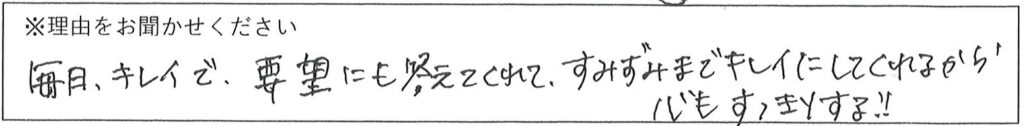 ※理由をお聞かせください
毎日、キレイで、要望にも答えてくれて、すみずみまでキレイにしてくれるから
心もすっきりする!!